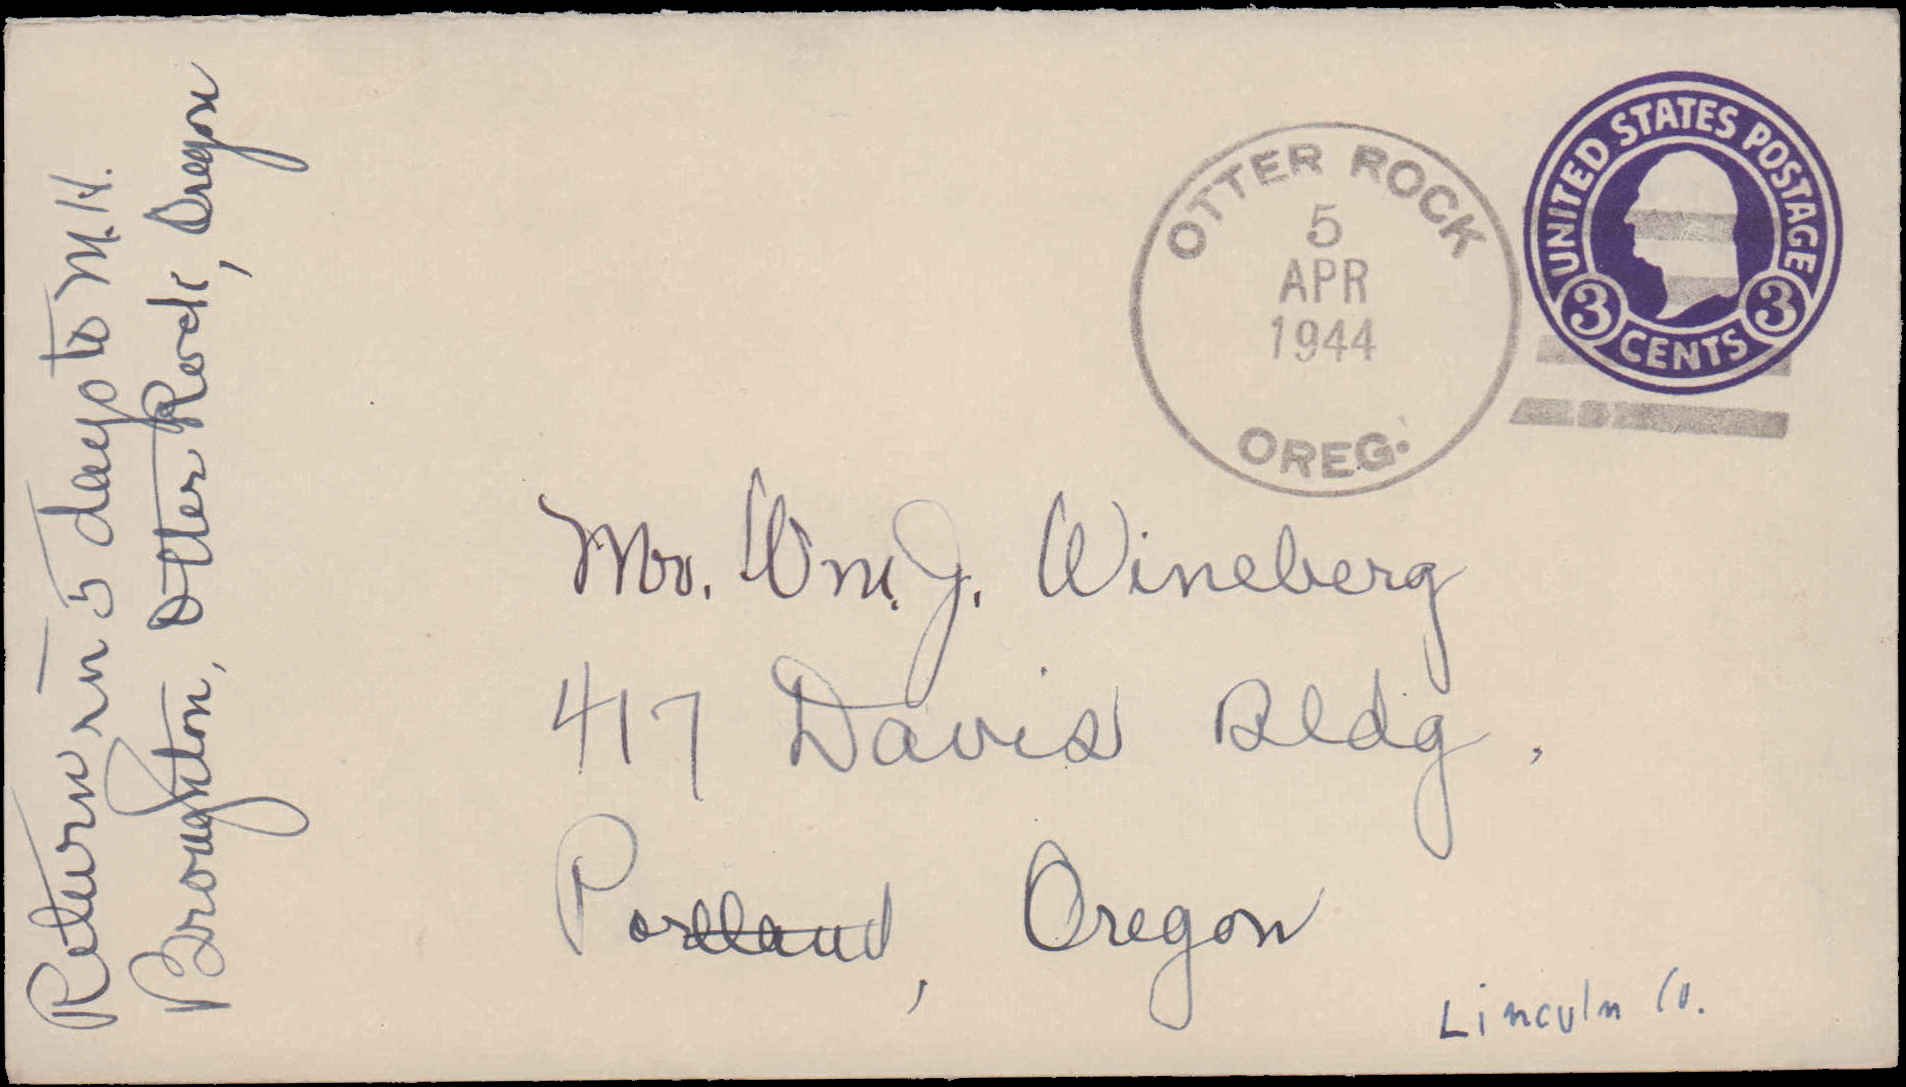 Return in 5 days to M.H.
Broughton, Otter Rock, Oregon
OTTER ROCK
5
APR
1944
OREG.
UNITED STATES POSTAGE
3 CENTS 3
Mr. Wm. J. Wineberg
417 Davis Bldg.
Portland, Oregon
Lincoln Co.